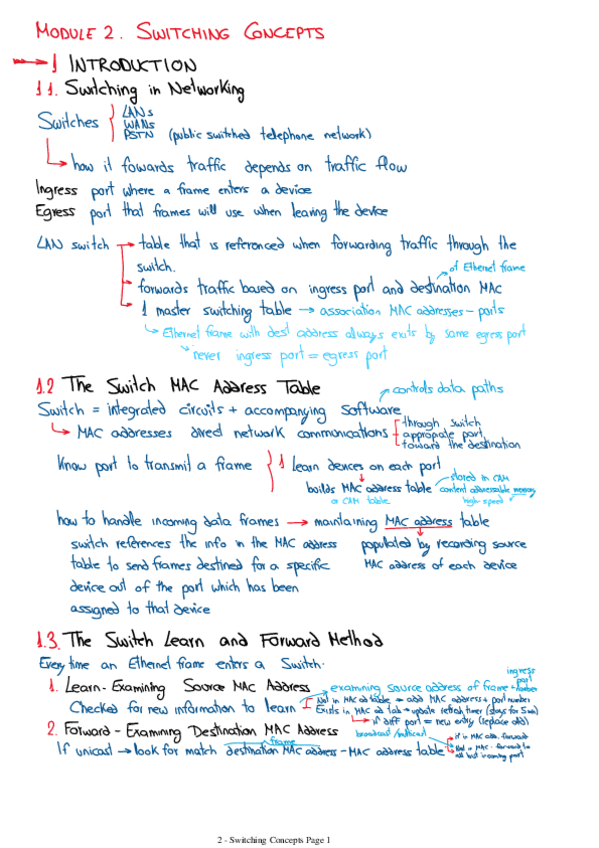 MODULE 2. SWITCHING CONCEPTS
1 INTRODUCTION
1.1. Switching in Networking
Switches
LANs
WANs
PSTN (public switched telephone network)
how it fowards traffic depends on traffic flow
Ingress port where a frame enters a device
Egress port that frames will use when leaving the device
LAN switch → table that is referenced when forwarding traffic through the
switch.
of Ethernet frame
forwards traffic based on ingress port and destination MAC
1 master switching table → association MAC addresses - ports
Ethernet frame with dest address always exits by same egress port
never ingress port = egress port
1.2 The Switch MAC Address Table
controls data paths
Switch = integrated circuits + accompanying software
MAC addresses direct network communications
through switch
appropiate port
toward the destination
Know port to transmit a frame
1 learn devices on each port
builds MAC address table
or CAM table
stored in CAM
content addressable memory
high-speed
how to handle incoming data frames → maintaining MAC address table
switch references the info in the MAC address
table to send frames destined for a specific
device out of the port which has been
assigned to that device
populated by recording source
MAC address of each device
1.3. The Switch Learn and Forward Method
Every time an Ethernet frame enters a Switch.
1. Learn - Examining Source MAC Address
examining source address of frame +
ingress
port
number
Checked for new information to learn
Not in MAC ad table → add MAC address + port number
Exists in MAC ad tab → update refresh timer (stays for 5min)
if diff port = new entry (replace old)
2. Forward - Examining Destination MAC Address
broadcast/multicast
If unicast → look for match destination MAC address - MAC address table
frame
if in MAC add. forward
Not in MAC - forward to
all but incoming port
2 - Switching Concepts Page 1